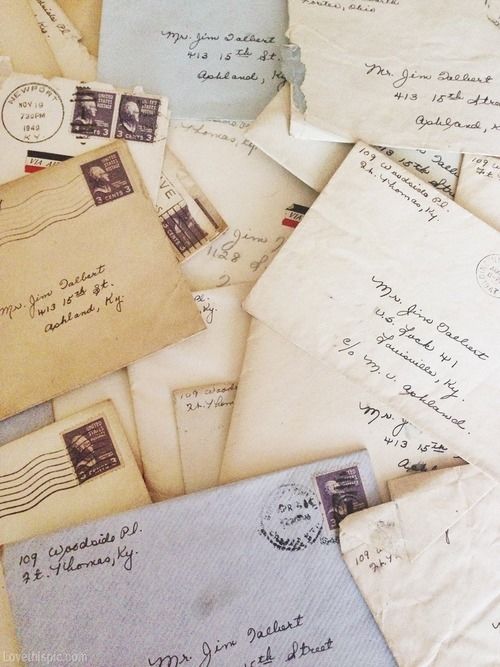 Ky.
Foster, Ohio
Mr. Jim Talbert
413 15th St.
Ashland, Ky.
Mr. Jim Talbert
413 15th Street
Ashland, K
NEWPORT
NOV 19
7 30PM
1949
KY.
3 CENTS 3
3 CENTS 3
VIA AIR
Thomas, Ky.
109 Woodside Pl.
Ft. Thomas, Ky.
15th S
UNITED STATES POSTAGE
3 CENTS 3
Mr. Jim Talbert
413 15th St.
Ashland, Ky.
Jim
1128
VIA
Mr. Jim Talbert
U.S. Lock 41
Louisville, Ky.
c/o M. V. Ashland.
Pl.
Ky.
109 Woods
Ft. Thom
Mr. J
413 15th
Ashland
109 Woodside Pl.
Ft. Thomas, Ky.
109 W
Ft. Th
Mr. Jim Talbert
413 15th Street
Lovethispic.com